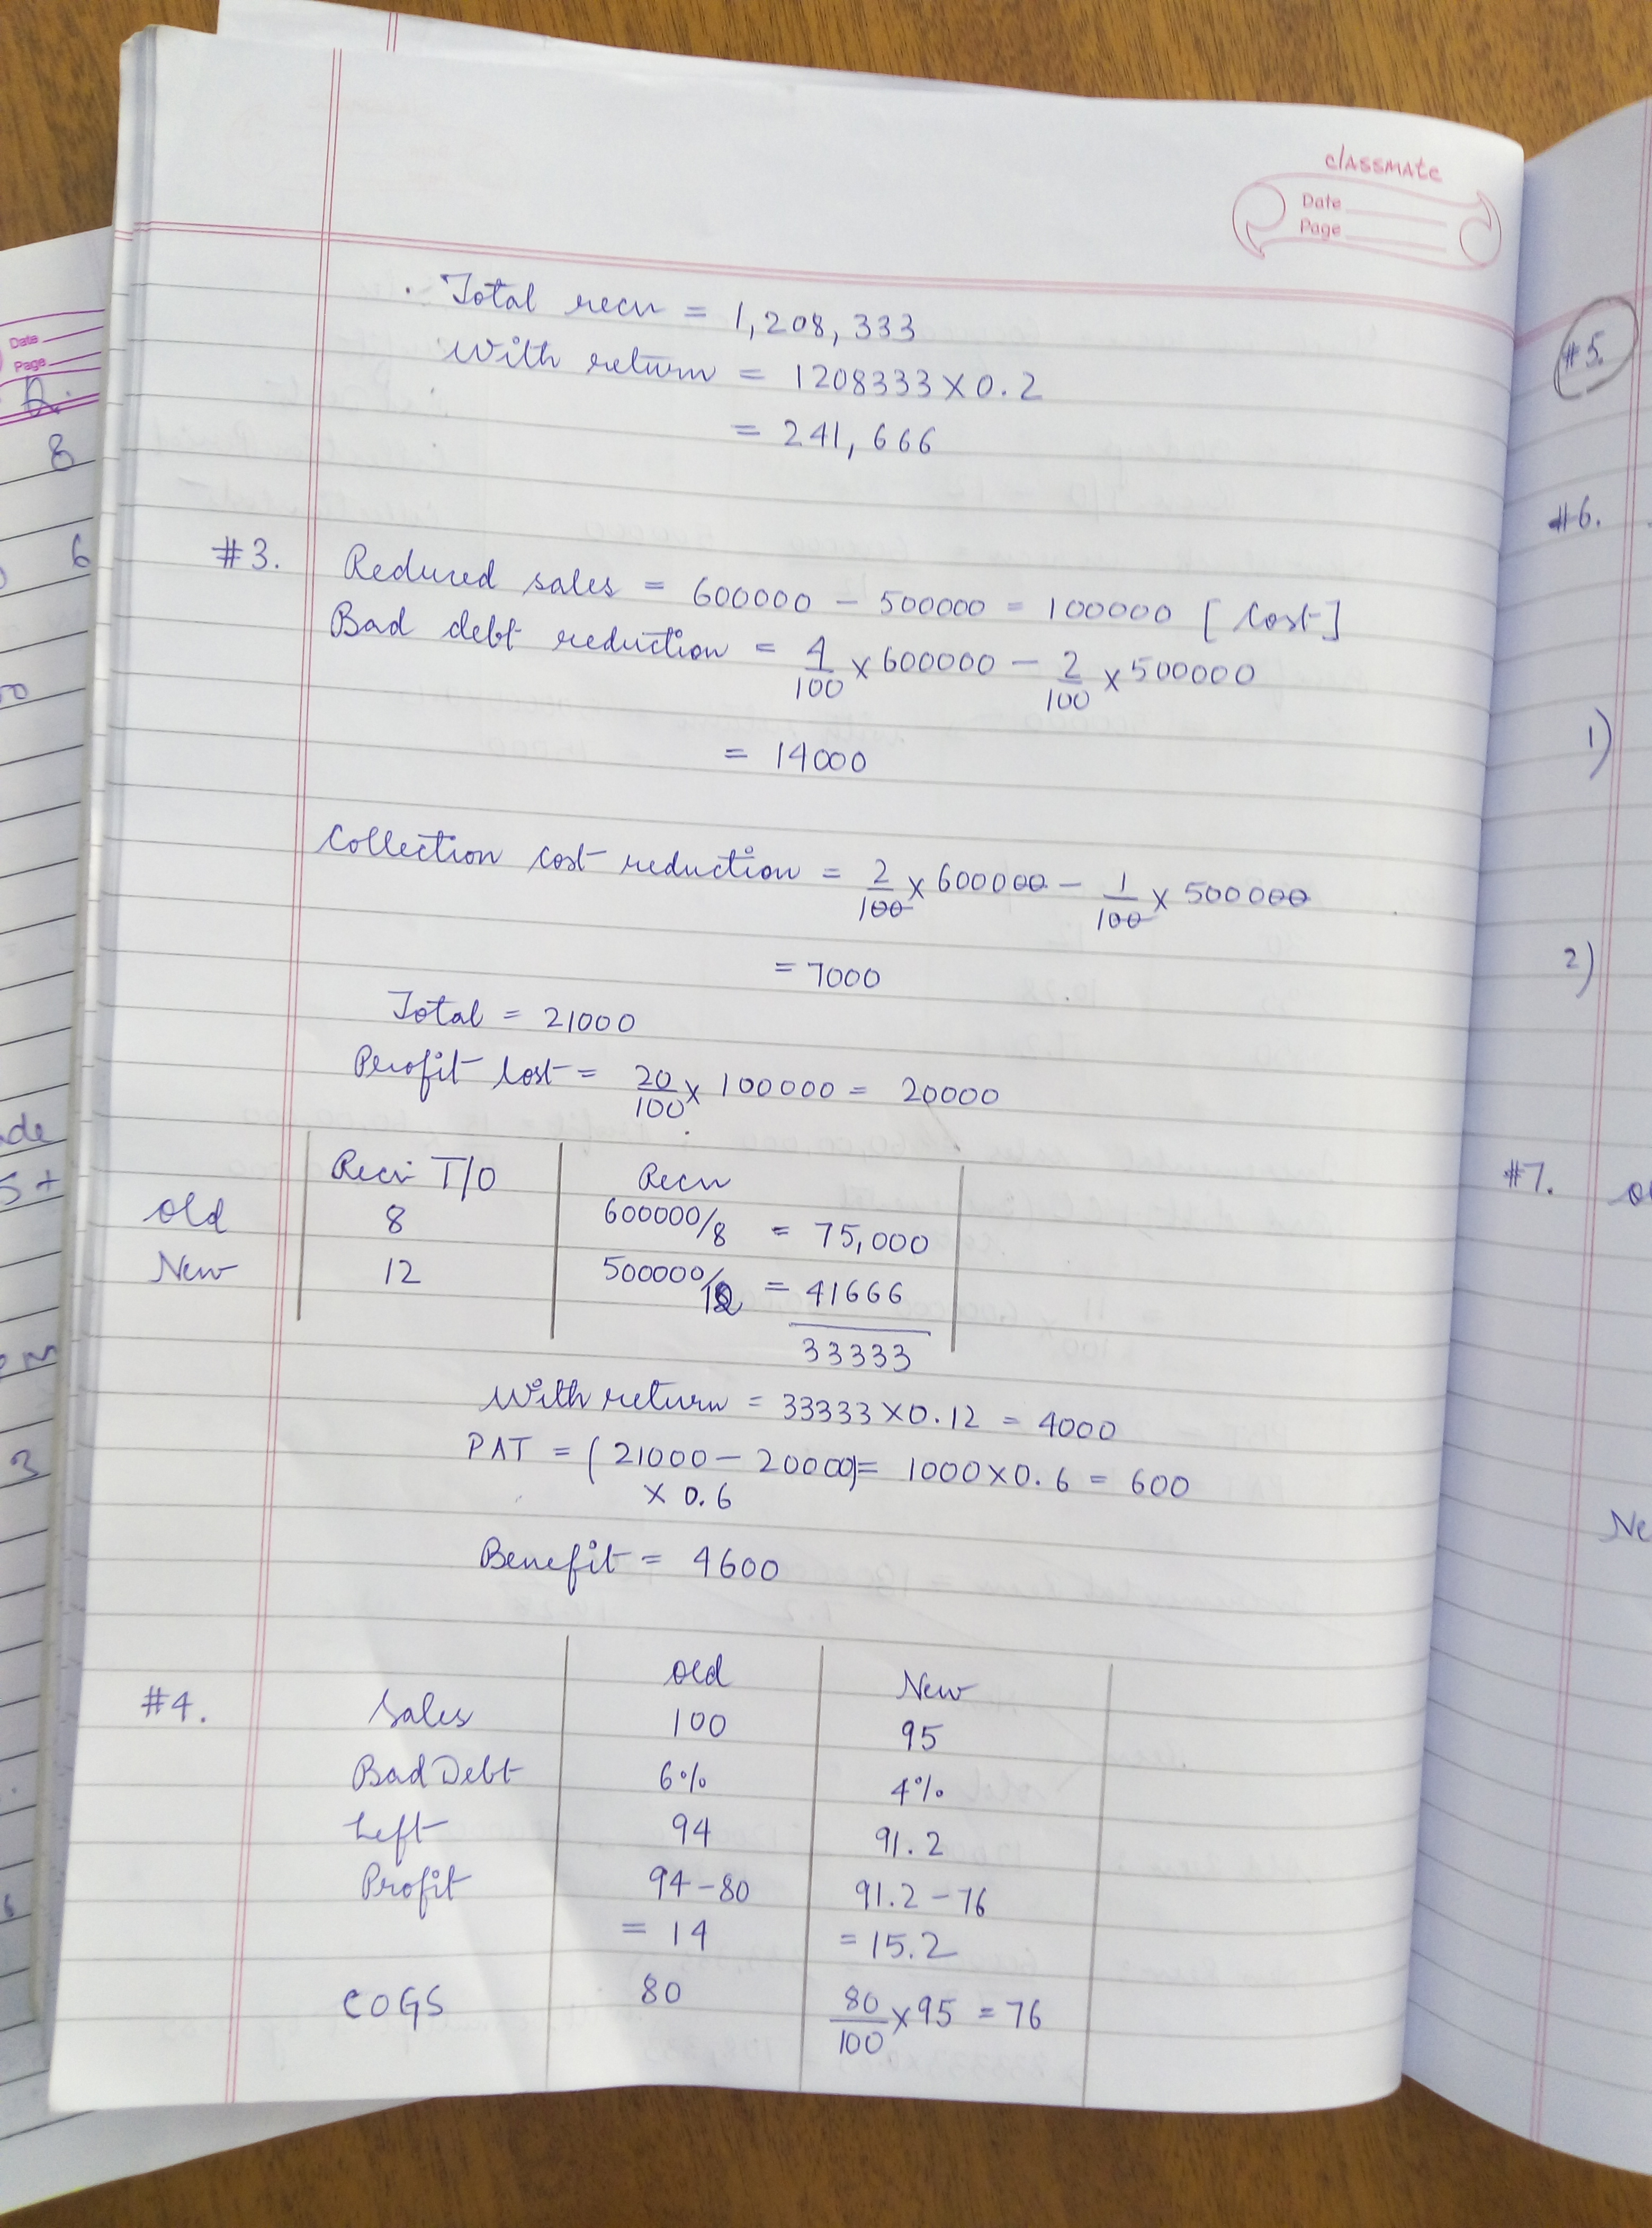 classmate
Date
Page
. Total recv = 1,208,333
With return = 1208333 X 0.2
= 241,666
#3. Reduced sales = 600000 - 500000 = 100000 [Cost]
Bad debt reduction = 4/100 x 600000 - 2/100 x 500000
= 14000
Collection cost reduction = 2/100 x 600000 - 1/100 x 500000
= 7000
Total = 21000
Profit lost = 20/100 x 100000 = 20000
Recv T/O Recv
Old 8 600000/8 = 75,000
New 12 500000/12 = 41666
33333
With return = 33333 X 0.12 = 4000
PAT = (21000 - 20000) = 1000 X 0.6 = 600
X 0.6
Benefit = 4600
Old New
#4. Sales 100 95
Bad Debt 6% 4%
Left 94 91.2
Profit 94-80 91.2-76
= 14 = 15.2
COGS 80 80/100 x 95 = 76
Date
Page
8
6
3
#5.
#6.
1)
2)
#7.